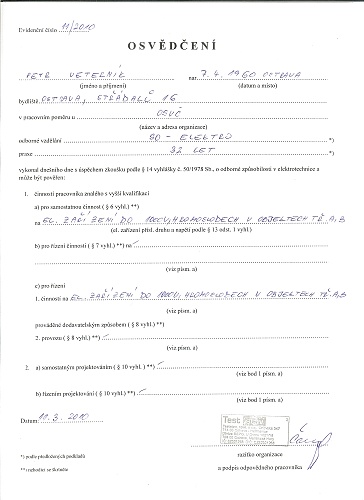 Evidenční číslo 11/2010
OSVĚDČENÍ
PETR VETERNÍK nar. 7.4.1960 OSTRAVA
(jméno a příjmení) (datum a místo)
bydliště OSTRAVA, STŘÁDALŮ 16
v pracovním poměru u OSVČ
(název a adresa organizace)
odborné vzdělání SO - ELEKTRO *)
praxe 32 LET *)
vykonal dnešního dne s úspěchem zkoušku podle § 14 vyhlášky č. 50/1978 Sb., o odborné způsobilosti v elektrotechnice a
může být pověřen:
1. činností pracovníka znalého s vyšší kvalifikací
a) pro samostatnou činnost ( § 6 vyhl.) **)
na EL. ZAŘÍZENÍ DO 1000V, HROMOSVODECH V OBJEKTECH TŘ. A, B
(el. zařízení přísl. druhu a napětí podle § 13 odst. 1 vyhl.)
b) pro řízení činnosti ( § 7 vyhl.) **) na
(viz písm. a)
c) pro řízení
1. činnosti na EL. ZAŘÍZENÍ DO 1000V, HROMOSVODECH V OBJEKTECH TŘ. A, B
(viz písm. a)
prováděné dodavatelským způsobem ( § 8 vyhl.) **)
2. provozu ( § 8 vyhl.) **)
(viz písm. a)
2. a) samostatným projektováním ( § 10 vyhl.) **)
(viz bod 1 písm. a)
b) řízením projektování ( § 10 vyhl.) **)
(viz bod 1 písm. a)
Datum: 10.3.2010
Test
*) podle předložených podkladů
**) nehodící se škrtněte
razítko organizace
a podpis odpovědného pracovníka